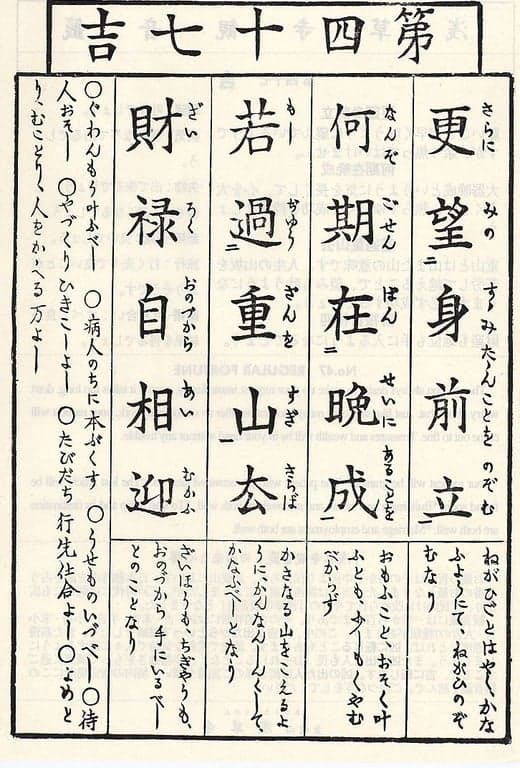 第四十七吉
更望身前立
さらに みの すゝみたゝんことをのぞむ
ねがひごとはやくかな
ふよふにてねがひのぞ
むなり
何期在晩成
なんぞ ごせん はん せいにあることを
おもふことおそく叶
ふともふしもくやむ
べからず
若過重山去
もし さんを すぎ さらば
かさなる山をこえるよ
うに、かんなんしんくして、
かなふべしとなり
財禄自相迎
ざい ろく おのづから あい むかふ
ざいほうもちぎやうも、
おのづから手にいるべし
とのことなり
〇ぐわんもう叶ふべし 〇病人のちに本ぷくす 〇うせものいづべし 〇待
人おそし 〇やづくりひきこしよし 〇たびだち行先仕合よし 〇よめと
り、むことり、人をかゝへる万よし